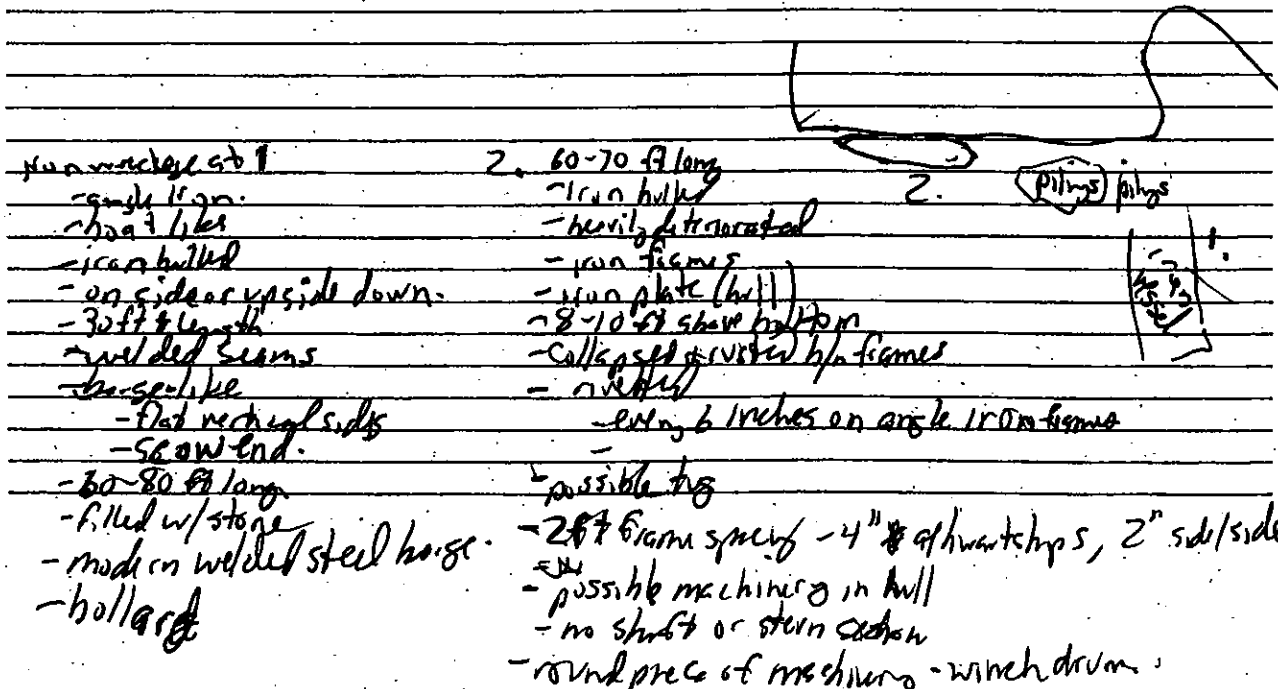 Iron wreckage at 1
- angle iron.
- boat like
- iron hulled
- on side or upside down.
- 30 ft length
- welded seams
- barge-like
- flat vertical sides
- scow end.
- 60-80 ft long
- filled w/ stone
- modern welded steel barge.
- bollard
2. 60-70 ft long
- Iron hulled
- heavily deteriorated
- iron frames
- iron plate (hull)
- 8-10 ft above bottom
- Collapsed & rusted b/n frames
- riveted
- every 6 inches on angle iron frames
-
- possible tug
- 2 ft frame spacing - 4" athwartships, 2" side/side
- possible machinery in hull
- no shaft or stern section
- round piece of machinery - winch drum.
2.
pilings pilings
1.
vessel